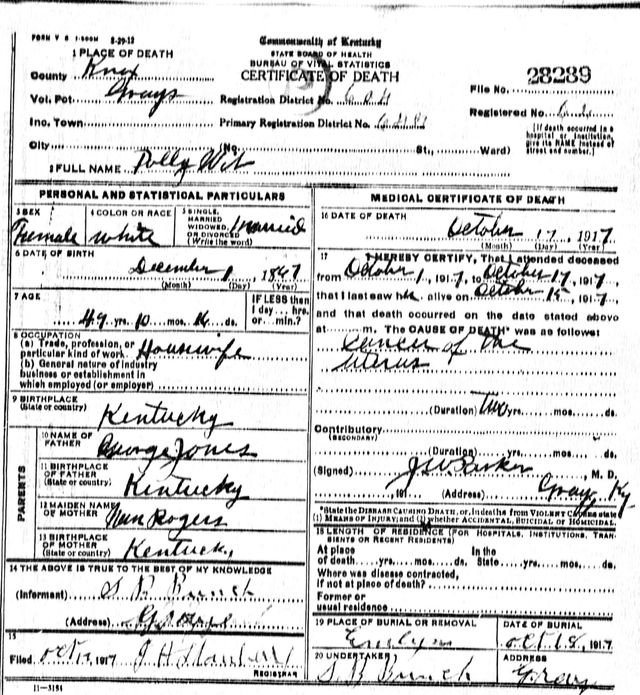 FORM V S 1-500M 8-29-12
Commonwealth of Kentucky
STATE BOARD OF HEALTH
BUREAU OF VITAL STATISTICS
CERTIFICATE OF DEATH
1 PLACE OF DEATH
County Knox
Vol. Pct. Grays
Inc. Town
City
Registration District No.
Primary Registration District No.
File No. 28289
Registered No.
(No. St., Ward)
[If death occurred in a
hospital or institution,
give its NAME instead of
street and number.]
2 FULL NAME Polly
PERSONAL AND STATISTICAL PARTICULARS
3 SEX Female
4 COLOR OR RACE white
5 SINGLE, MARRIED WIDOWED, OR DIVORCED (Write the word) married
6 DATE OF BIRTH
December 1, 1867
(Month) (Day) (Year)
7 AGE
49 yrs. 10 mos. 16 ds.
IF LESS than
1 day... hrs.
or min.?
8 OCCUPATION
(a) Trade, profession, or
particular kind of work Housewife
(b) General nature of industry
business or establishment in
which employed (or employer)
9 BIRTHPLACE
(State or country) Kentucky
PARENTS
10 NAME OF
FATHER George Jones
11 BIRTHPLACE
OF FATHER
(State or country) Kentucky
12 MAIDEN NAME
OF MOTHER Rogers
13 BIRTHPLACE
OF MOTHER
(State or country) Kentucky
14 THE ABOVE IS TRUE TO THE BEST OF MY KNOWLEDGE
(Informant) Bunch
(Address)
15
Filed Oct 17, 1917 J H
REGISTRAR
11-3184
MEDICAL CERTIFICATE OF DEATH
16 DATE OF DEATH
October 17, 1917
(Month) (Day) (Year)
17 I HEREBY CERTIFY, That I attended deceased
from October 1, 1917, to October 17, 1917,
that I last saw h alive on October 15, 1917,
and that death occurred on the date stated above
at m. The CAUSE OF DEATH* was as follows:
Cancer of the
uterus
(Duration) two yrs. mos. ds.
Contributory
(SECONDARY)
(Duration) yrs. mos. ds.
(Signed) J W Parker, M. D.
, 191 (Address) Gray, Ky
*State the DISEASE CAUSING DEATH, or, in deaths from VIOLENT CAUSES state
(1) MEANS OF INJURY; and (2) whether ACCIDENTAL, SUICIDAL OF HOMICIDAL.
18 LENGTH OF RESIDENCE (FOR HOSPITALS, INSTITUTIONS, TRAN-
SIENTS OR RECENT RESIDENTS)
At place In the
of death yrs. mos. ds. State yrs. mos. ds.
Where was disease contracted,
if not at place of death?
Former or
usual residence
19 PLACE OF BURIAL OR REMOVAL
DATE OF BURIAL
Oct 18, 1917
20 UNDERTAKER
Bunch
ADDRESS
Gray